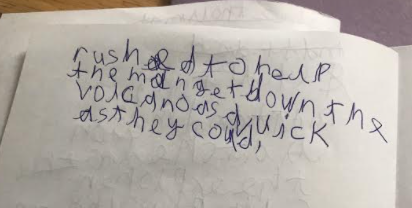 rushed to help
the man get down the
volcano as quick
as they could,